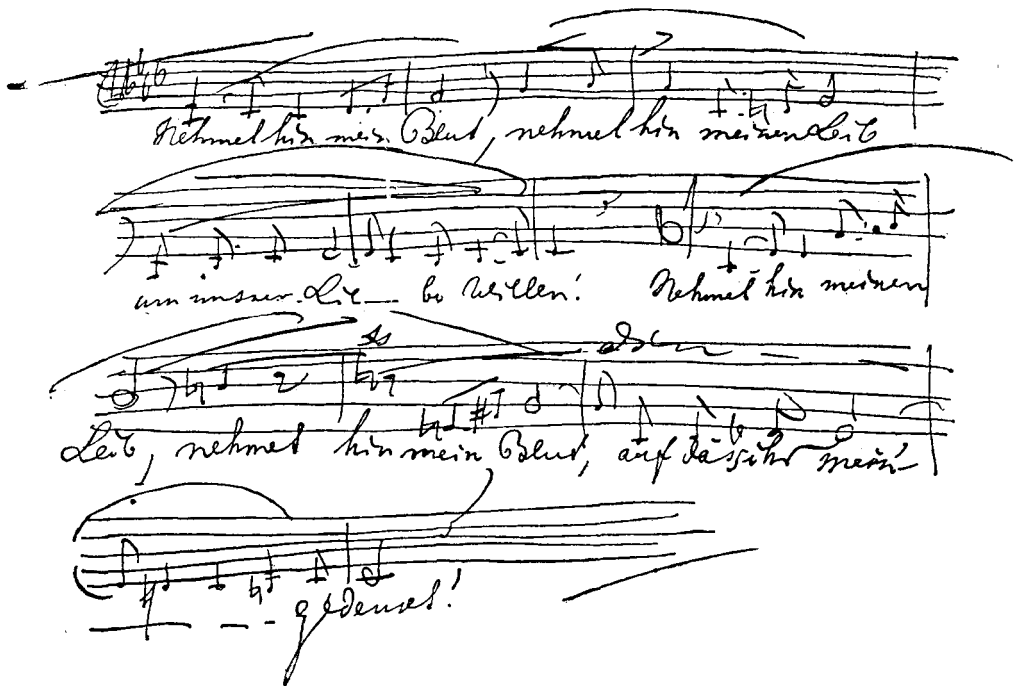 Nehmet hin mein Blut, nehmet hin meinen Leib
um unsrer Lie — be Willen! Nehmet hin meinen
Leib, nehmet hin mein Blut, auf dass ihr mein
gedenket!